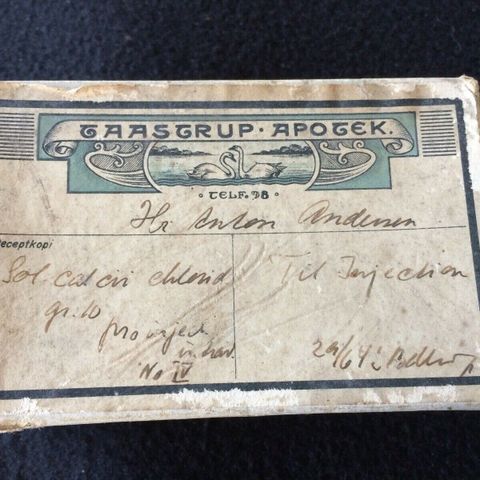 TAASTRUP · APOTEK.
TELF. 98
Hr Anton Andersen
Receptkopi
Sol calcii chlorid
gr. 10
pro inject
No IV
Til Injection